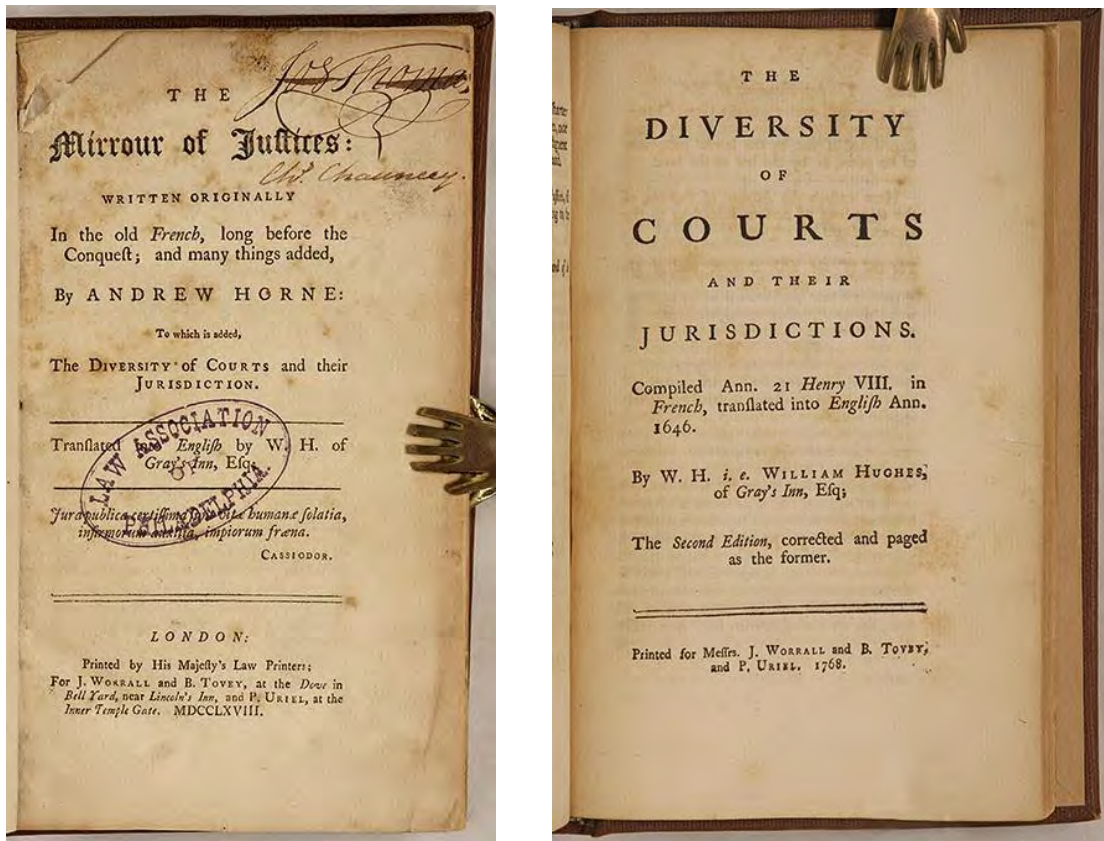 Jos Thomas
THE
Mirrour of Juſtices:
Chs. Chauncey.
WRITTEN ORIGINALLY
In the old French, long before the
Conqueſt; and many things added,
By ANDREW HORNE:
To which is added,
The DIVERSITY of COURTS and their
JURISDICTION.
Tranſlated into Engliſh by W. H. of
Gray's Inn, Eſq;
LAW ASSOCIATION
OF
PHILADELPHIA.
Jura publica certiſſima ſunt vitæ humanæ ſolatia,
infirmorum auxilia, impiorum fræna.
CASSIODOR.
LONDON:
Printed by His Majeſty's Law Printers;
For J. WORRALL and B. TOVEY, at the Dove in
Bell Yard, near Lincoln's Inn, and P. URIEL, at the
Inner Temple Gate. MDCCLXVIII.
THE
DIVERSITY
OF
COURTS
AND THEIR
JURISDICTIONS.
Compiled Ann. 21 Henry VIII. in
French, tranſlated into Engliſh Ann.
1646.
By W. H. i. e. WILLIAM HUGHES,
of Gray's Inn, Eſq;
The Second Edition, corrected and paged
as the former.
Printed for Meſſrs. J. WORRALL and B. TOVEY,
and P. URIEL. 1768.